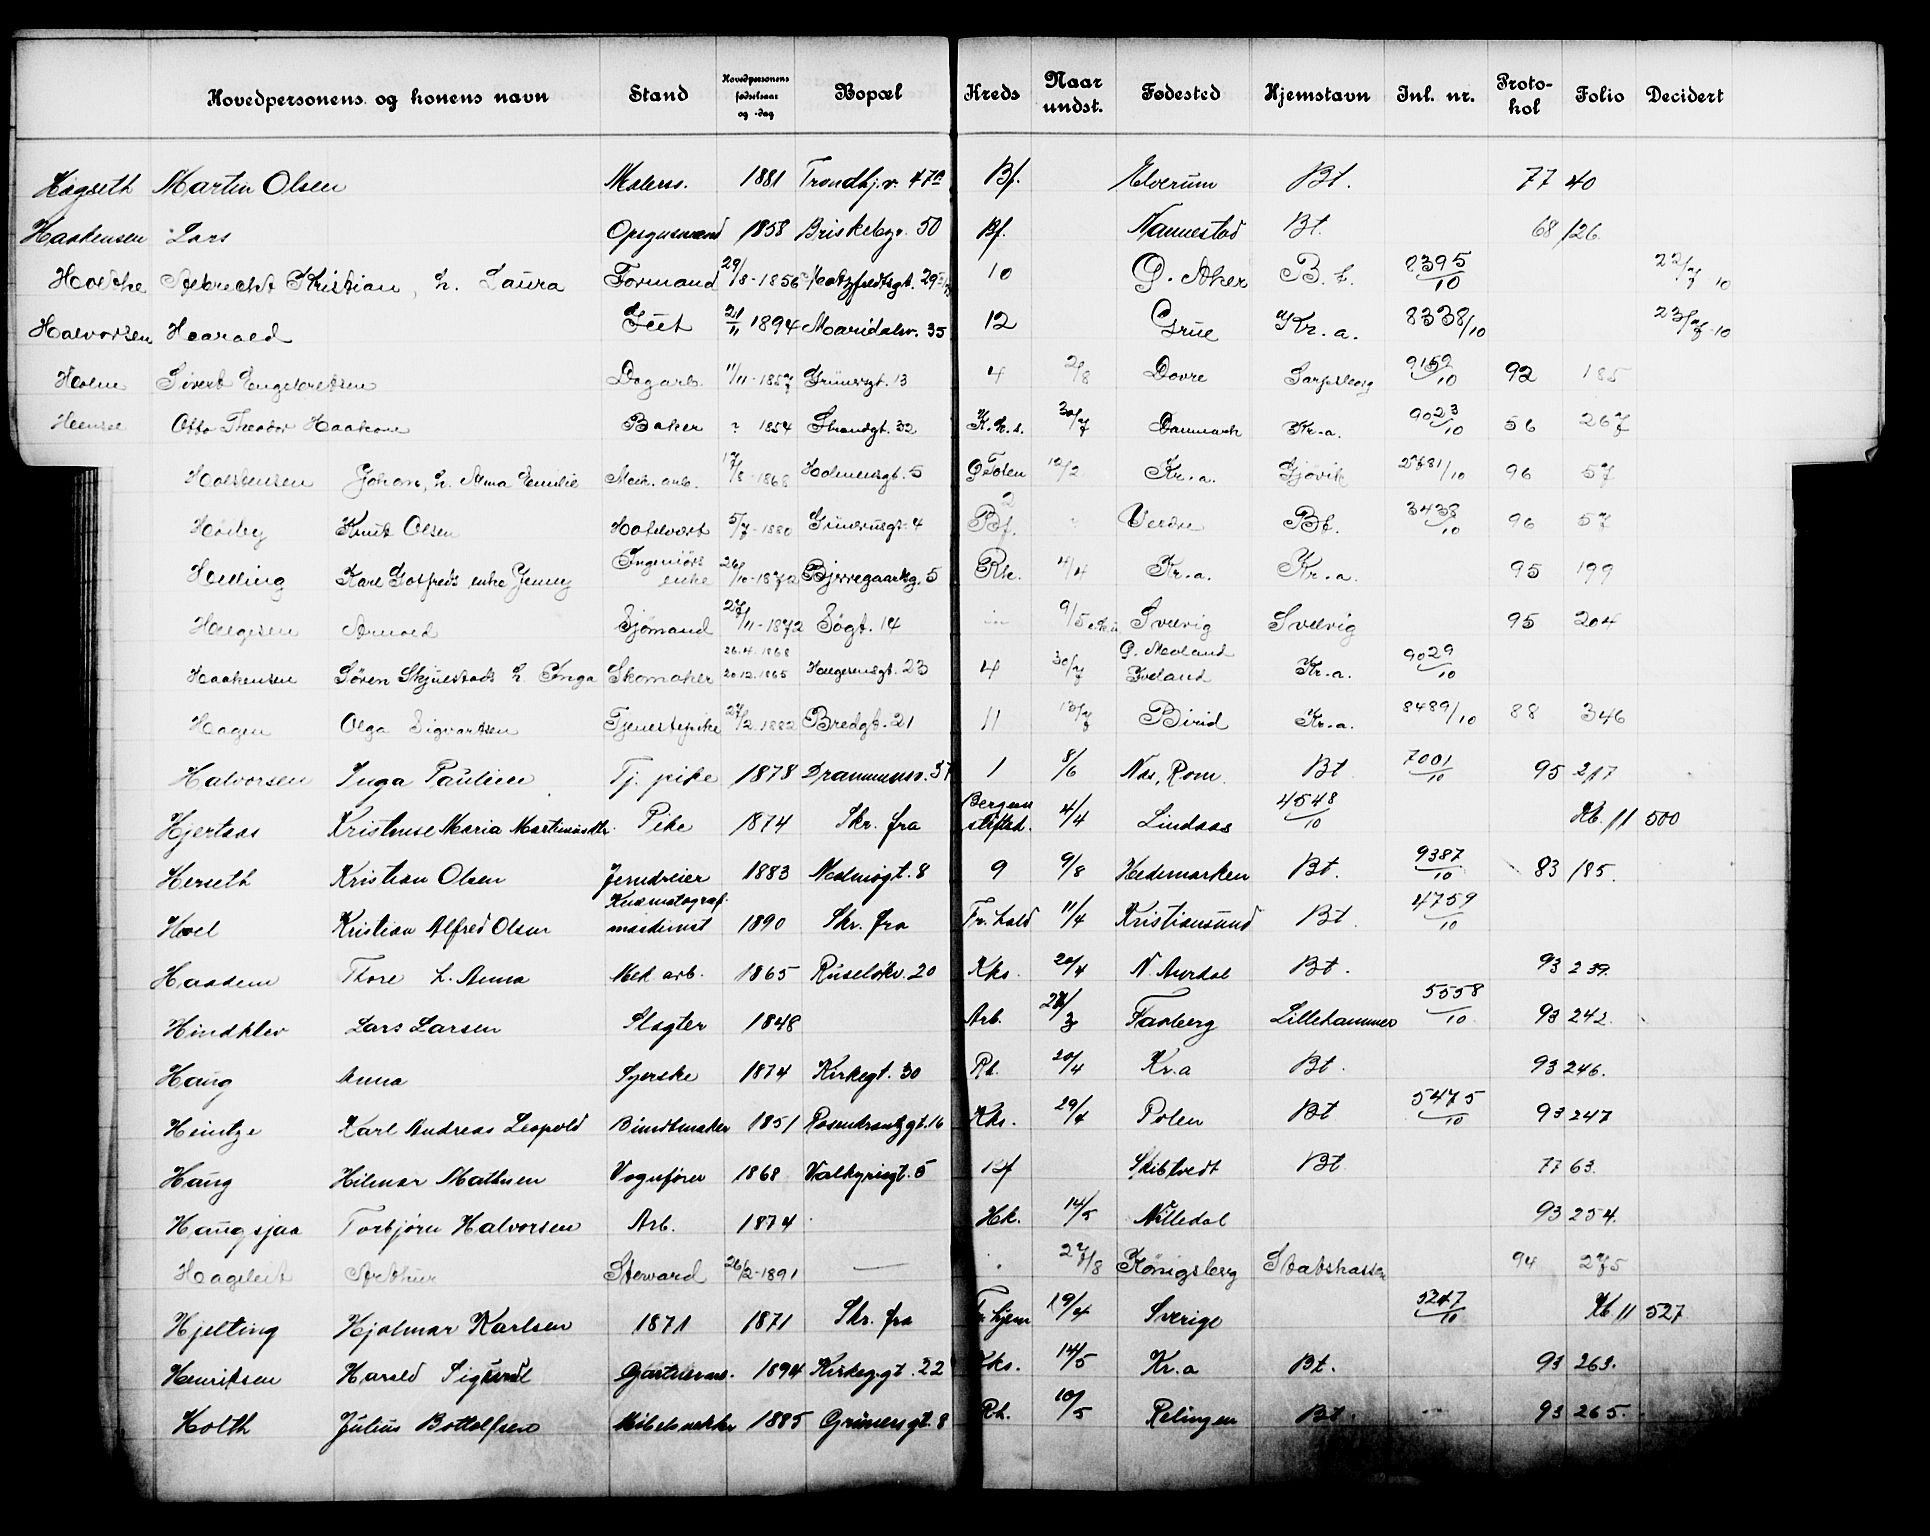 Hovedpersonens og konens navn Stand Hovedpersonens fødselsaar og -dag Bopæl Kreds Naar undst. Fødested Hjemstavn Inl. nr. Protokol Folio Decidert
Høgseth Martin Olsen Malers. 1881 Trondhj.v. 47a Bf. Elverum Bt. 77 40
Haakensen Lars Opsynsmand 1858 Briskebyv. 50 Bf. Nannestad Bt. 68 126
Holthe Albrecht Kristian, h. Laura Formand 29/8-1856 10 Ø. Aker B.t. 8395/10 22/7 10
Halvorsen Harald 21/11 1894 Maridalsv. 35 12 Grue Kr.a. 8338/10 10
Holm Sivert Engebretsen Dagarb. 11/11-1857 Grünersgt. 13 4 2/8 Dovre Sarpsborg 9152/10 92 185
Otto Theodor Haakon Baker ? 1854 Strandgt. 32 K.h.s. 30/7 Danmark Kr.a. 9023/10 56 267
Holstensen Johan, h. Anna Emilie Mek. arb. 17/8-1868 Holmensgt. 5 Ø Toten 12/2 Kr.a. Gjøvik 96 57
Høiby Knut Olsen Hotelvært 5/7-1880 Grünersgt. 4 Bf. Bt. 3438/10 96 57
Helling Karl Gotfreds enke Jenny Ingeniørs enke 26/10-1872 Bjerregaardsg. 5 Rk. 4/4 Kr.a. Kr.a. 95 199
Helgesen Arnold Sjømand 27/11-1872 Søgt. 14 9/5 Svelvig Svelvig 95 204
Haakensen Søren Skjulestads h. Inga Skomaker 26.4.1868 20.12.1865 Helgesensgt. 23 4 30/7 Ø. Moland Iveland Kr.a. 9029/10
Hagen Olga Sigvartsen Tjenestepike 27/2.1882 Bredgt. 21 11 13/7 Birid Kr.a. 8489/10 88 346
Halvorsen Inga Pauline Tj. pike 1878 Drammensv. 37 1 8/6 Nes, Rom. Bt 7001/10 95 217
Hjertaas Kristense Maria Martinusdtr. Pike 1874 Skr. fra Bergens stiftsd. 4/4 Lindaas 4548/10 Kb. 11 500
Herseth Kristian Olsen Jerndreier 1883 Malmøgt. 8 9 9/8 Hedemarken Bt. 9387/10 83 185.
Hoel Kristian Alfred Olsen Kinematograf maskinist 1890 Skr. fra Fr.hald 11/4 Kristiansund Bt 4759/10
Haadem Thore h. Anna Mek arb. 1865 Ruseløkv. 20 Kks. 20/4 N. Aurdal Bt. 93 239.
Hindklev Lars Larsen Slagter 1848 Arb. Faaberg Lillehammer 5558/10 93 242.
Haug Anna Syerske 1874 Kirkegt. 30 Rk. 20/4 Kr.a Bt. 93 246.
Heintze Karl Andreas Leopold Buntmaker 1851 Rosenkrantzgt. 16 Kks. 29/4 Polen Bt 5475/10 93 247
Haug Hilmar Mathisen Vognfører 1868 Valkyriegt. 5 Bf Skibtvedt Bt. 77 63.
Haugsjaa Torbjørn Halvorsen Arb. 1874 Hk. 14/5 Nissedal 93 254.
Hageleit Arthur Steward 26/2-1891 — 27/8 Königsberg Statskassen 94 275
Hjelting Hjalmar Karlsen 1871 1871 Skr. fra Tr.hjem 19/4 Sverige 5247/10 Kb 11 527
Henriksen Harald Sigurd Gartnerarb. 1894 Kirkegt. 22 Kks. 14/5 Kr.a Bt. 93 263.
Holth Julius Bottolfsen Møbelsnekker 1885 Grünersgt. 8 Rk. 10/5 Relingen Bt. 93 265.